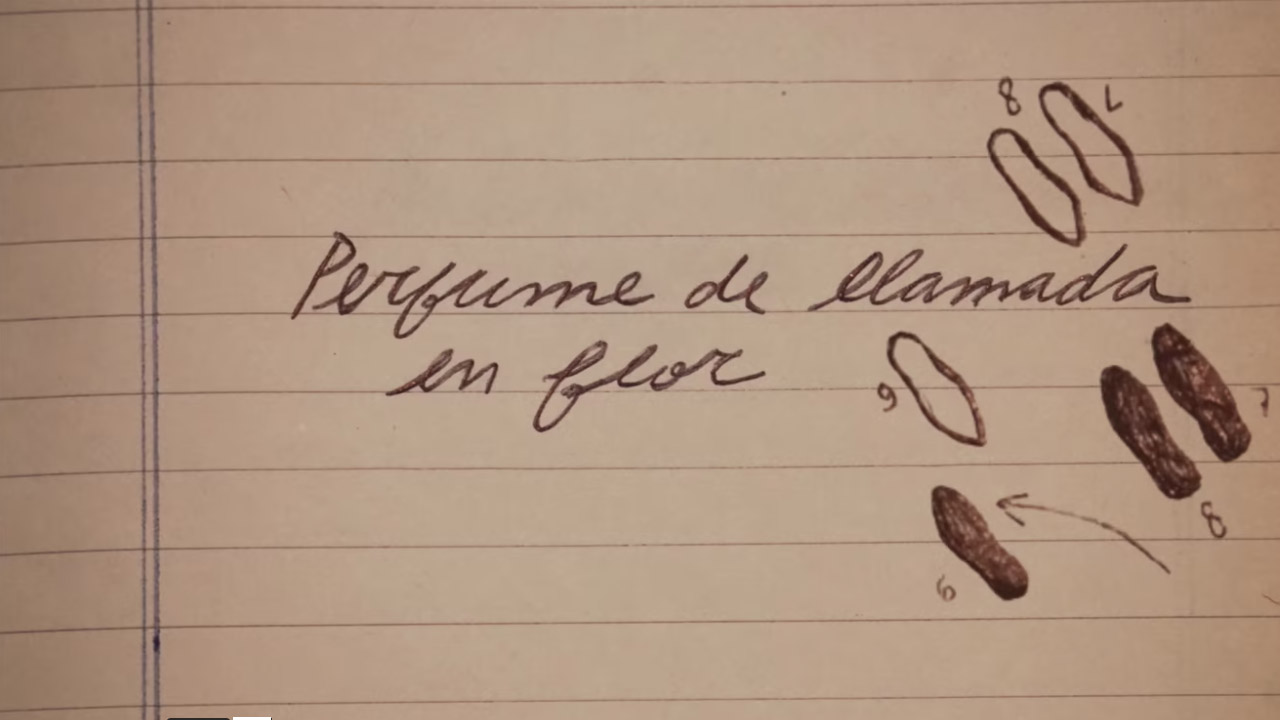 8 7
Perfume de llamada
en flor
9
7
8
6